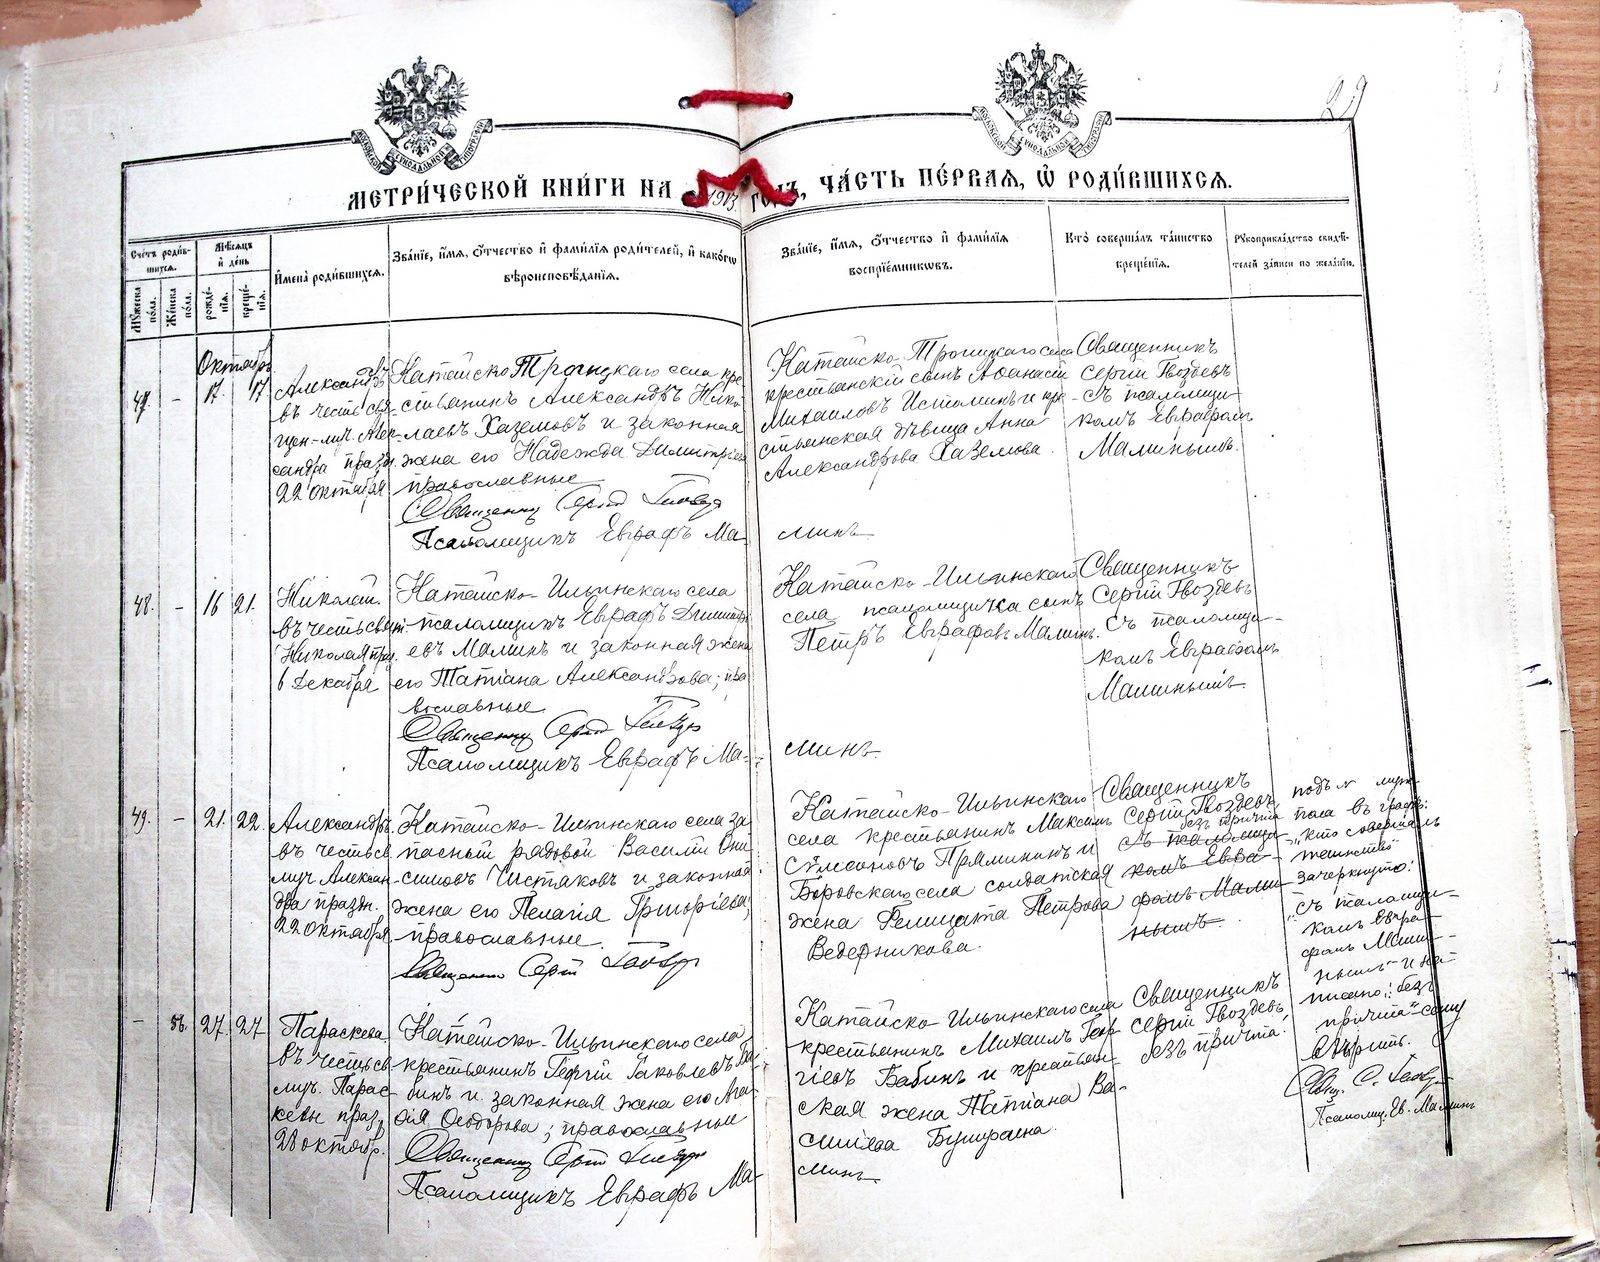 29
МЕТРИ́ЧЕСКОЙ КНИ́ГИ НА 1913 ГОДЪ, ЧА́СТЬ ПЕ́РВАЯ, Ѡ РОДИ́ВШИХСЯ.
Сче́тъ роди́вшихся.
Мꙋ́жеска по́ла.
Же́нска по́ла.
Мѣ́сяцъ и҆ де́нь
рожде́нїя.
креще́нїя.
И҆мена̀ роди́вшихся.
Зва́нїе, и҆́мя, ѻ҆́тчество и҆ фами́лїя роди́телей, и҆ како́гѡ
вѣроисповѣ́данїя.
Зва́нїе, и҆́мя, ѻ҆́тчество и҆ фами́лїя
воспрїе́мникѡвъ.
Кто̀ соверша́лъ та́инство
креще́нїя.
Рꙋкоприкла́дство свидѣ́-
телей за́писи по жела́нїю.
Октябрь
47. - 17. 17
Александръ
въ честь свя-
сандра праздн.
22 октября
Катайско-Троицкаго села кре-
стьянинъ Александръ Нико-
лаевъ Хаземовъ и законная
жена его Надежда Димитріева
православные
Священникъ Сергій Гвоздевъ
Псаломщикъ Евграфъ Ма-
Катайско-Троицкаго села
крестьянскій сынъ Аѳанасій
Михаиловъ Истоминъ и кре-
стьянская дѣвица Анна
Александрова Хаземова.
минъ
Священникъ
Сергій Гвоздевъ
съ псаломщи-
комъ Евграфомъ
Малинымъ.
48. - 16 21.
Николай.
въ честь свят.
Николая праз.
6 Декабря
Катайско-Ильинскаго села
псаломщикъ Евграфъ Димитрі-
евъ Малинъ и законная жена
его Татіана Александрова; пра-
вославные
Священникъ Сергій Гвоздевъ
Псаломщикъ Евграфъ Ма-
Катайско-Ильинскаго
села псаломщичка сынъ
Петръ Евграфовъ Малинъ.
минъ
Священникъ
Сергій Гвоздевъ
съ псаломщи-
комъ Евграфомъ
Малинымъ.
49. - 21. 22.
Александръ
въ честь св.
муч. Алексан-
дра праздн.
22 октября
Катайско-Ильинскаго села за-
пасный рядовой Василій Они-
симовъ Чистяковъ и законная
жена его Пелагія Григоріева;
православные.
Священникъ Сергій Гвоздевъ
Катайско-Ильинскаго
села крестьянинъ Максимъ
Сѵмеоновъ Пряминкинъ и
Боровскаго села солдатская
жена Фелицата Петрова
Ведерникова.
Священникъ
Сергій Гвоздевъ,
безъ причта
съ псаломщи-
комъ Евгра-
фомъ Мали-
нымъ.
подъ № муж.
пола въ графѣ:
"кто совершалъ
таинство"
зачеркнуто:
"съ псаломщи-
комъ Евгра-
фомъ Мали-
нымъ" и на-
писано: "безъ
причта" – сему
вѣрить.
Свящ. С. Гвоздевъ
Псаломщ. Ев. Малинъ
- 56. 27. 27
Параскева
въ честь св.
муч. Парас-
кевы праз.
28 октябр.
Катайско-Ильинскаго села
крестьянинъ Георгій Іаковлевъ Ба-
бинъ и законная жена его Ага-
ѳія Ѳеодорова; православные
Священникъ Сергій Гвоздевъ
Псаломщикъ Евграфъ Ма-
Катайско-Ильинскаго села
крестьянинъ Михаилъ Геор-
гіевъ Бабинъ и крестьян-
ская жена Татіана Ва-
силіева
минъ
Священникъ
Сергій Гвоздевъ,
безъ причта.